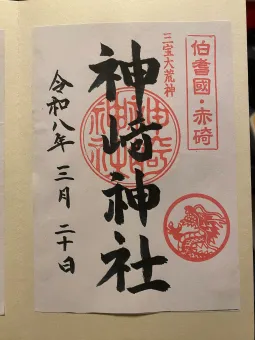 伯耆國・赤碕
三宝大荒神
神﨑神社
神崎神社
令和八年三月二十日